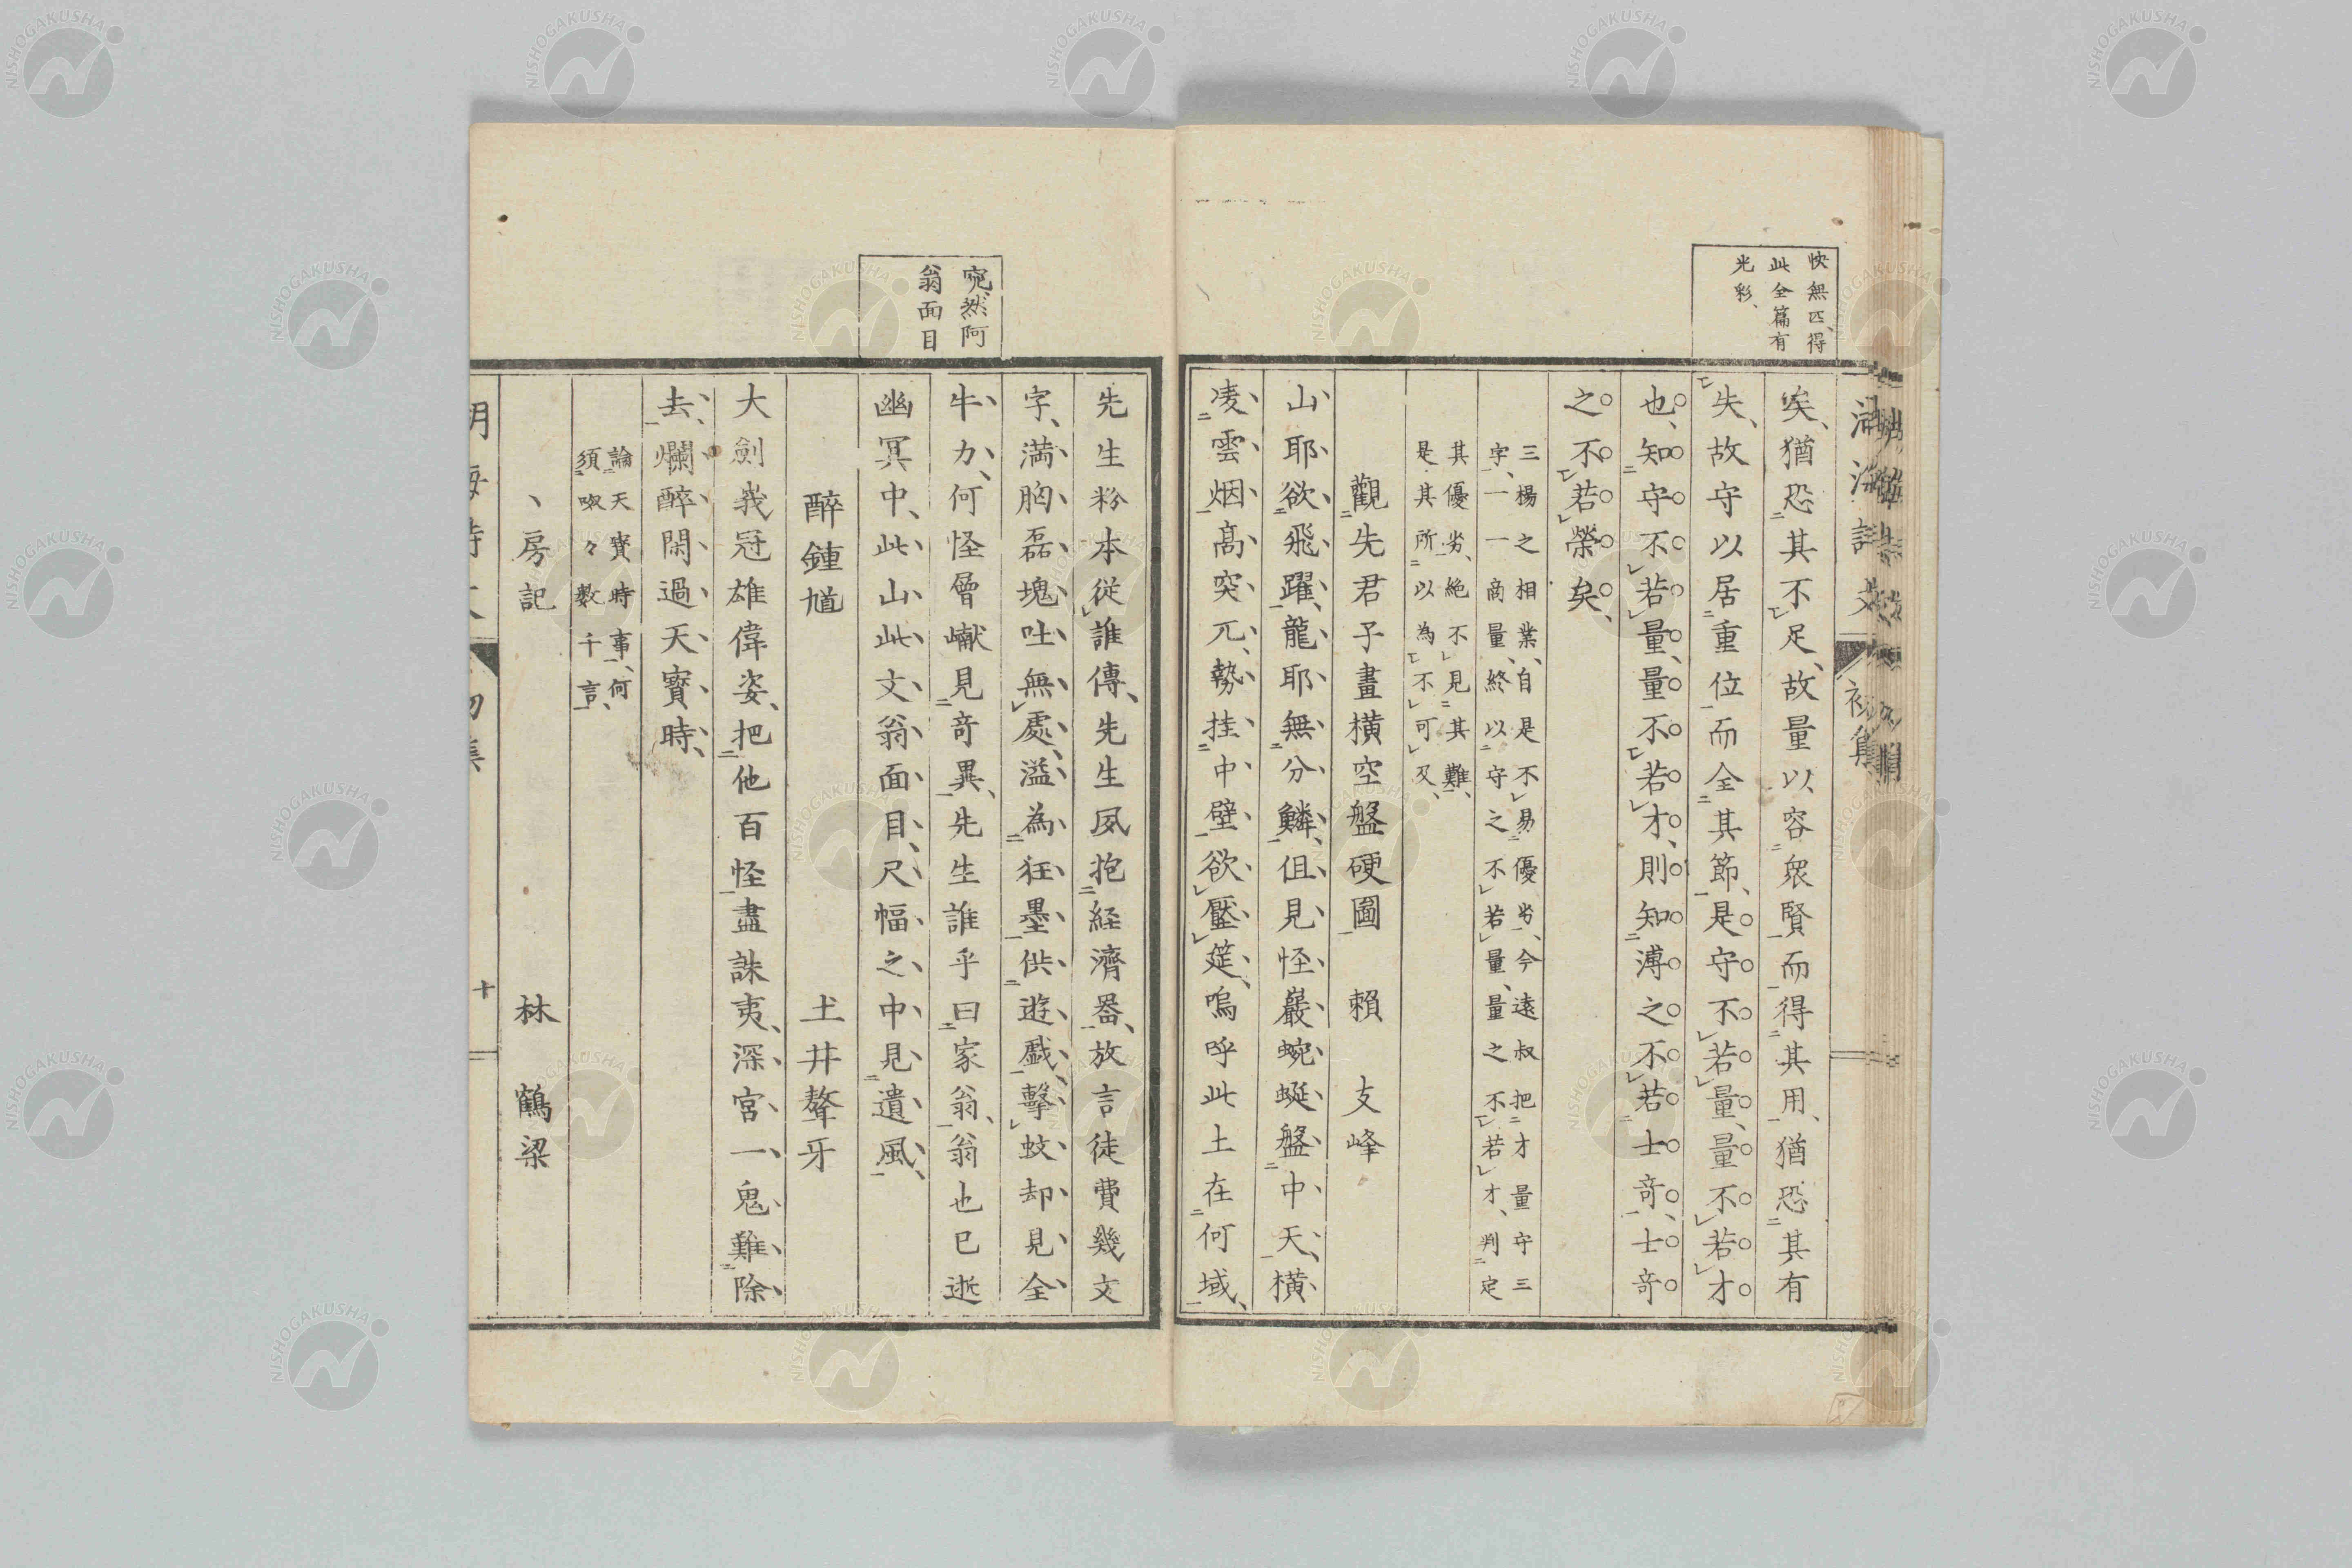 快無匹、得
此全篇有
光彩、
矣、猶恐其不足、故量以容衆賢而得其用、猶恐其有
失、故守以居重位而全其節、是守不若量、量不若才
也、知守不若量、量不若才、則知溥之不若士奇、士奇
之不若榮矣、
三楊之相業、自是不易優劣、今遠叔把才量守三
字、一一商量、終以守之不若量、量之不若才、判定
其優劣、絶不見其難、
是其所以為不可及、
觀先君子畫橫空盤硬圖　賴　支峰
山耶欲飛躍、龍耶無分鱗、但見怪巖蜿蜒盤中天、橫
凌雲烟高突兀、勢挂中壁欲壓筵、嗚呼此土在何域、
宛然阿
翁面目
先生粉本從誰傳、先生夙抱経濟器、放言徒費幾文
字、満胸磊塊吐無處、溢為狂墨供遊戲、擊蚊却見全
牛力、何怪層巘見奇異、先生誰乎曰家翁、翁也已逝
幽冥中、此山此文翁面目、尺幅之中見遺風、
醉鍾馗　土井聱牙
大劍峩冠雄偉姿、把他百怪盡誅夷、深宮一鬼難除
去、爛醉閑過天寶時、
論天寶時事、何
須呶々數千言、
、房記　林　鶴梁
初集
十
NISHOGAKUSHA